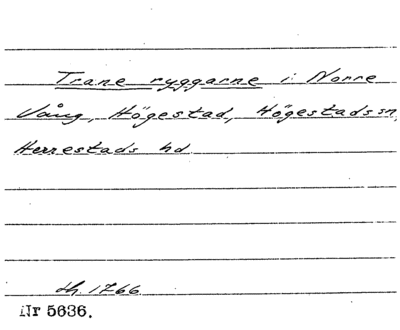 Trane ryggarne i Norre
Vång, Högestad, Högestads sn,
Herrestads hd
th. 1766
Nr 5636.